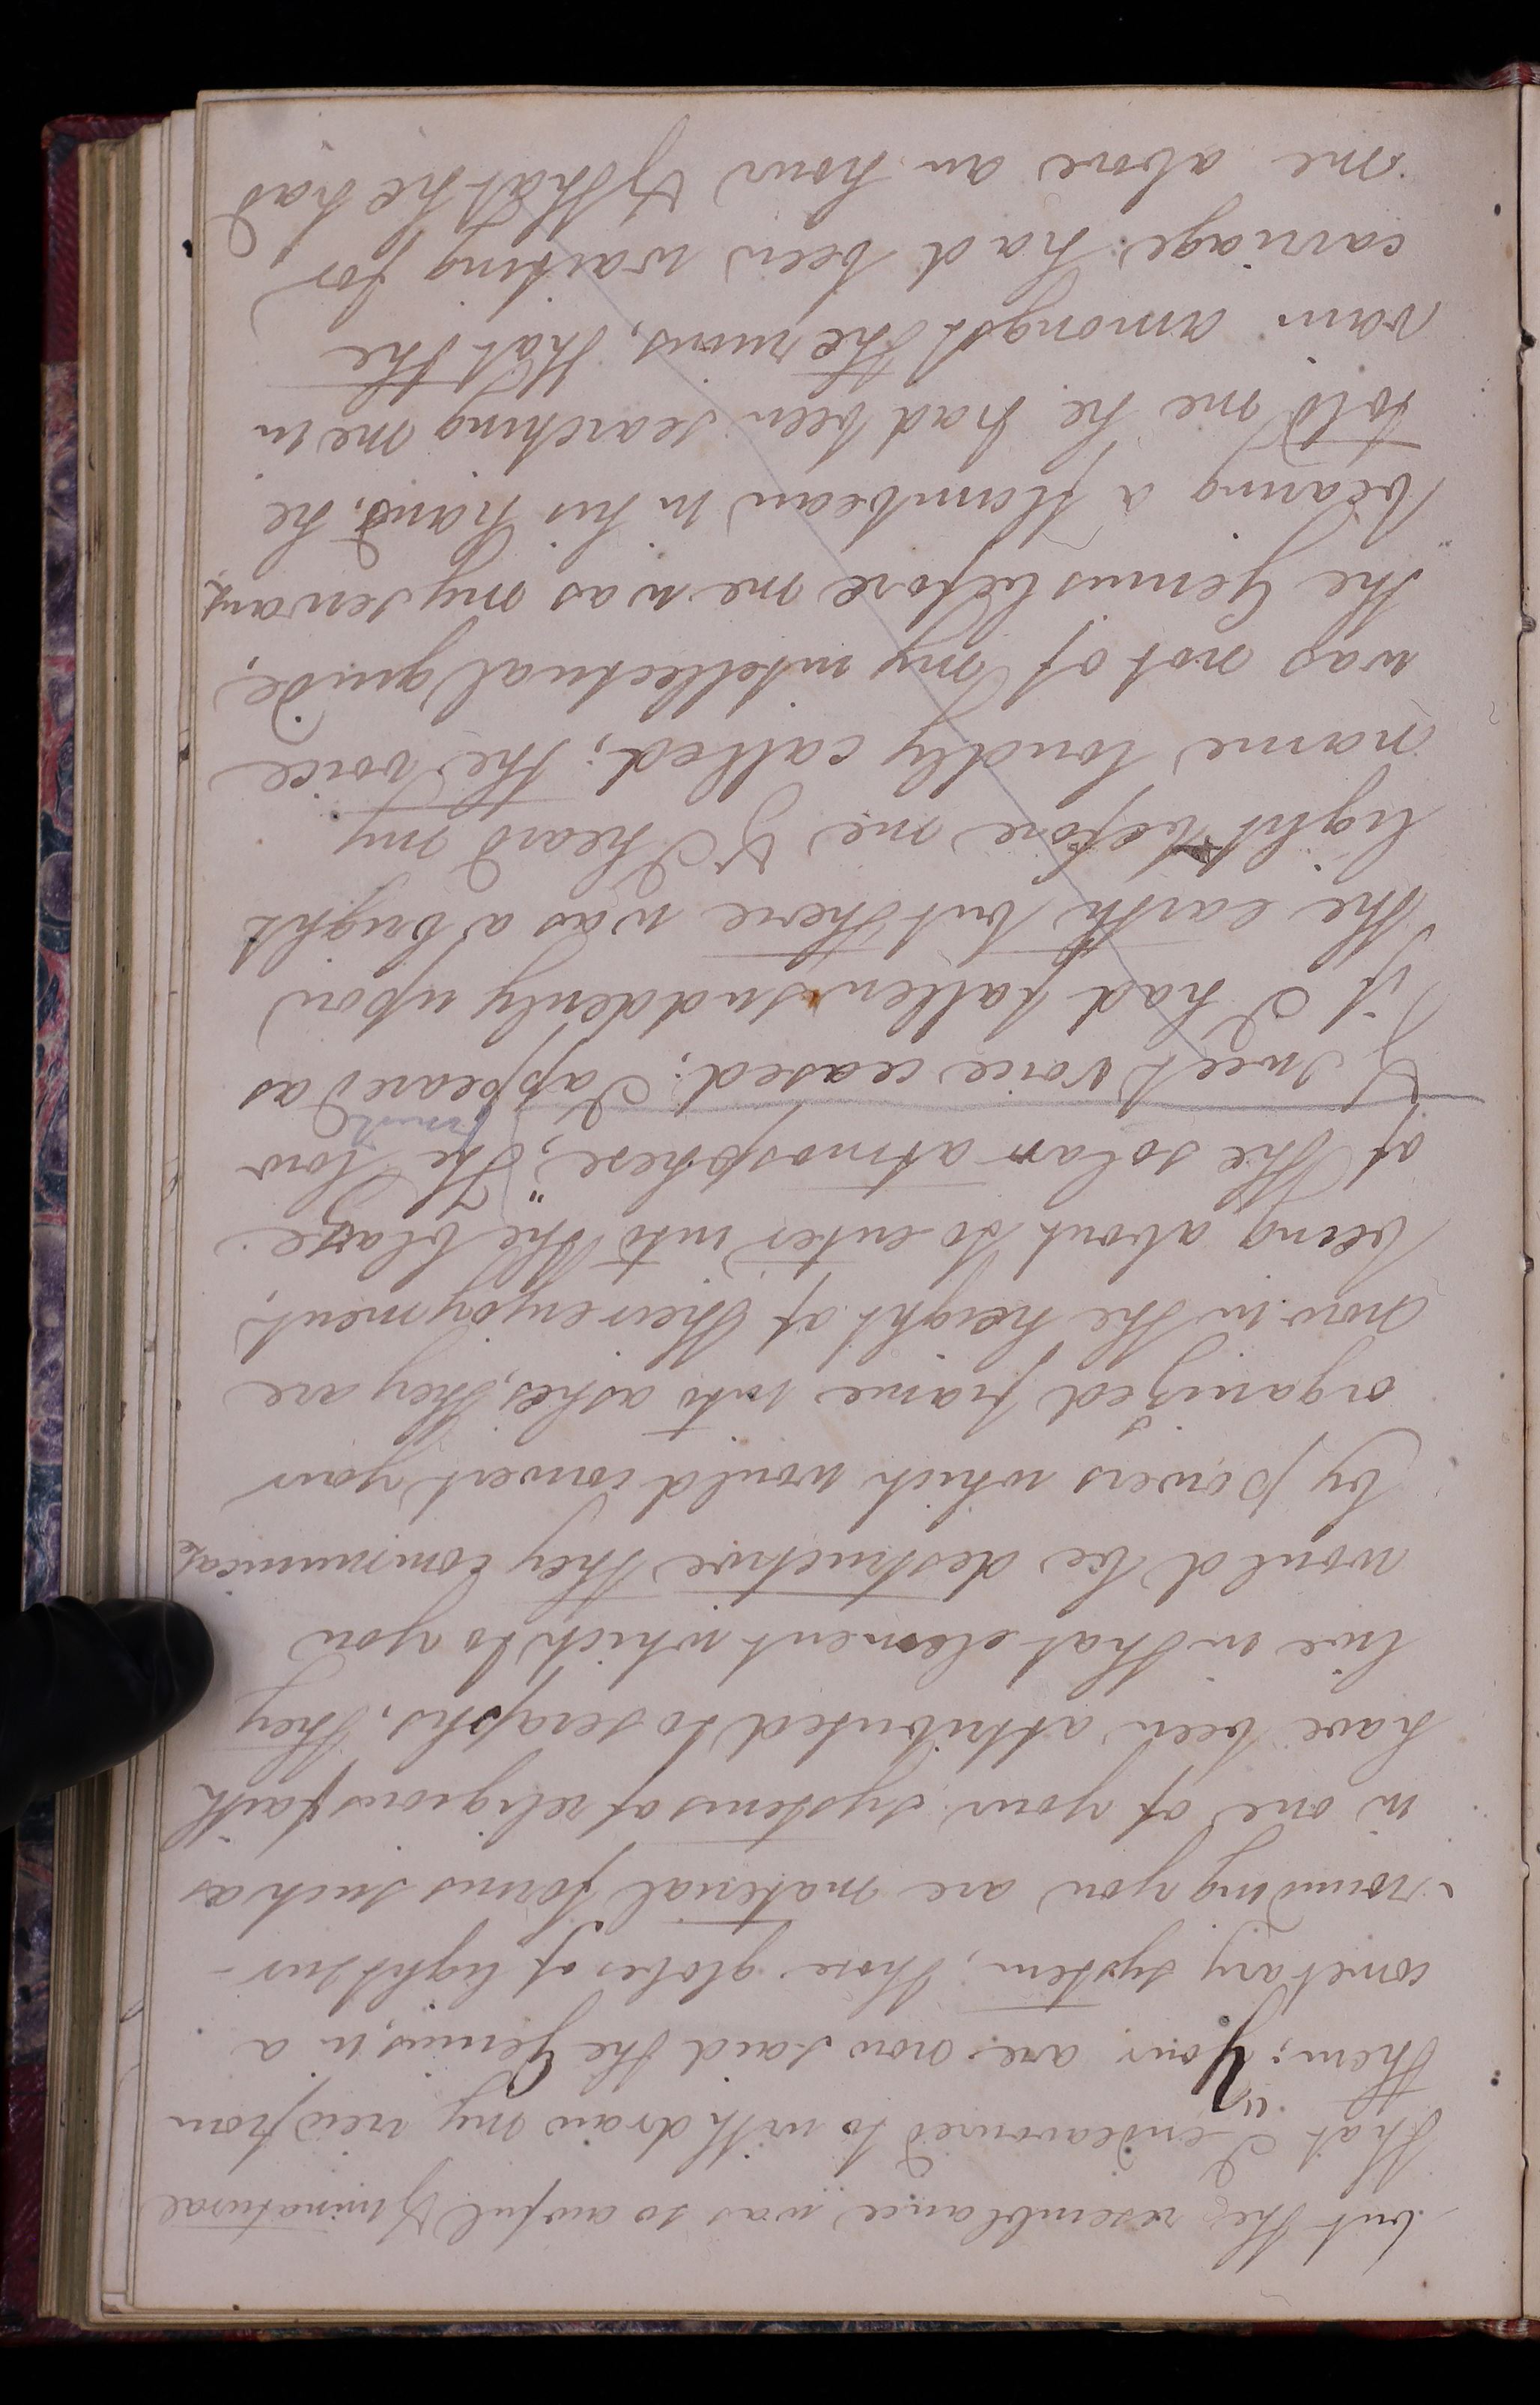 but the resemblance was so awful & unnatural
that I endeavoured to withdraw my view from
them; "You are now said the Genius, in a
cometary system; those globes of light sur-
rounding you are material forms such as
in one of your systems of religious faith
have been attributed to seraphs, they
live in that element which to you
would be destructive they communicate
by powers which would convert your
organized frame into ashes, they are
now in the height of their enjoyment,
being about to enter into the blaze
of the solar atmosphere," The low
& sweet voice ceased; I appeared as
if I had fallen suddenly upon
the earth but there was a bright
light before me & I heard my
name loudly called; the voice
was not of my intellectual guide,
the Genius before me was my servant
bearing a flambeau in his hand, he
told me he had been searching me in
vain amongst the ruins, that the
carriage had been waiting for
me above an hour & that he had